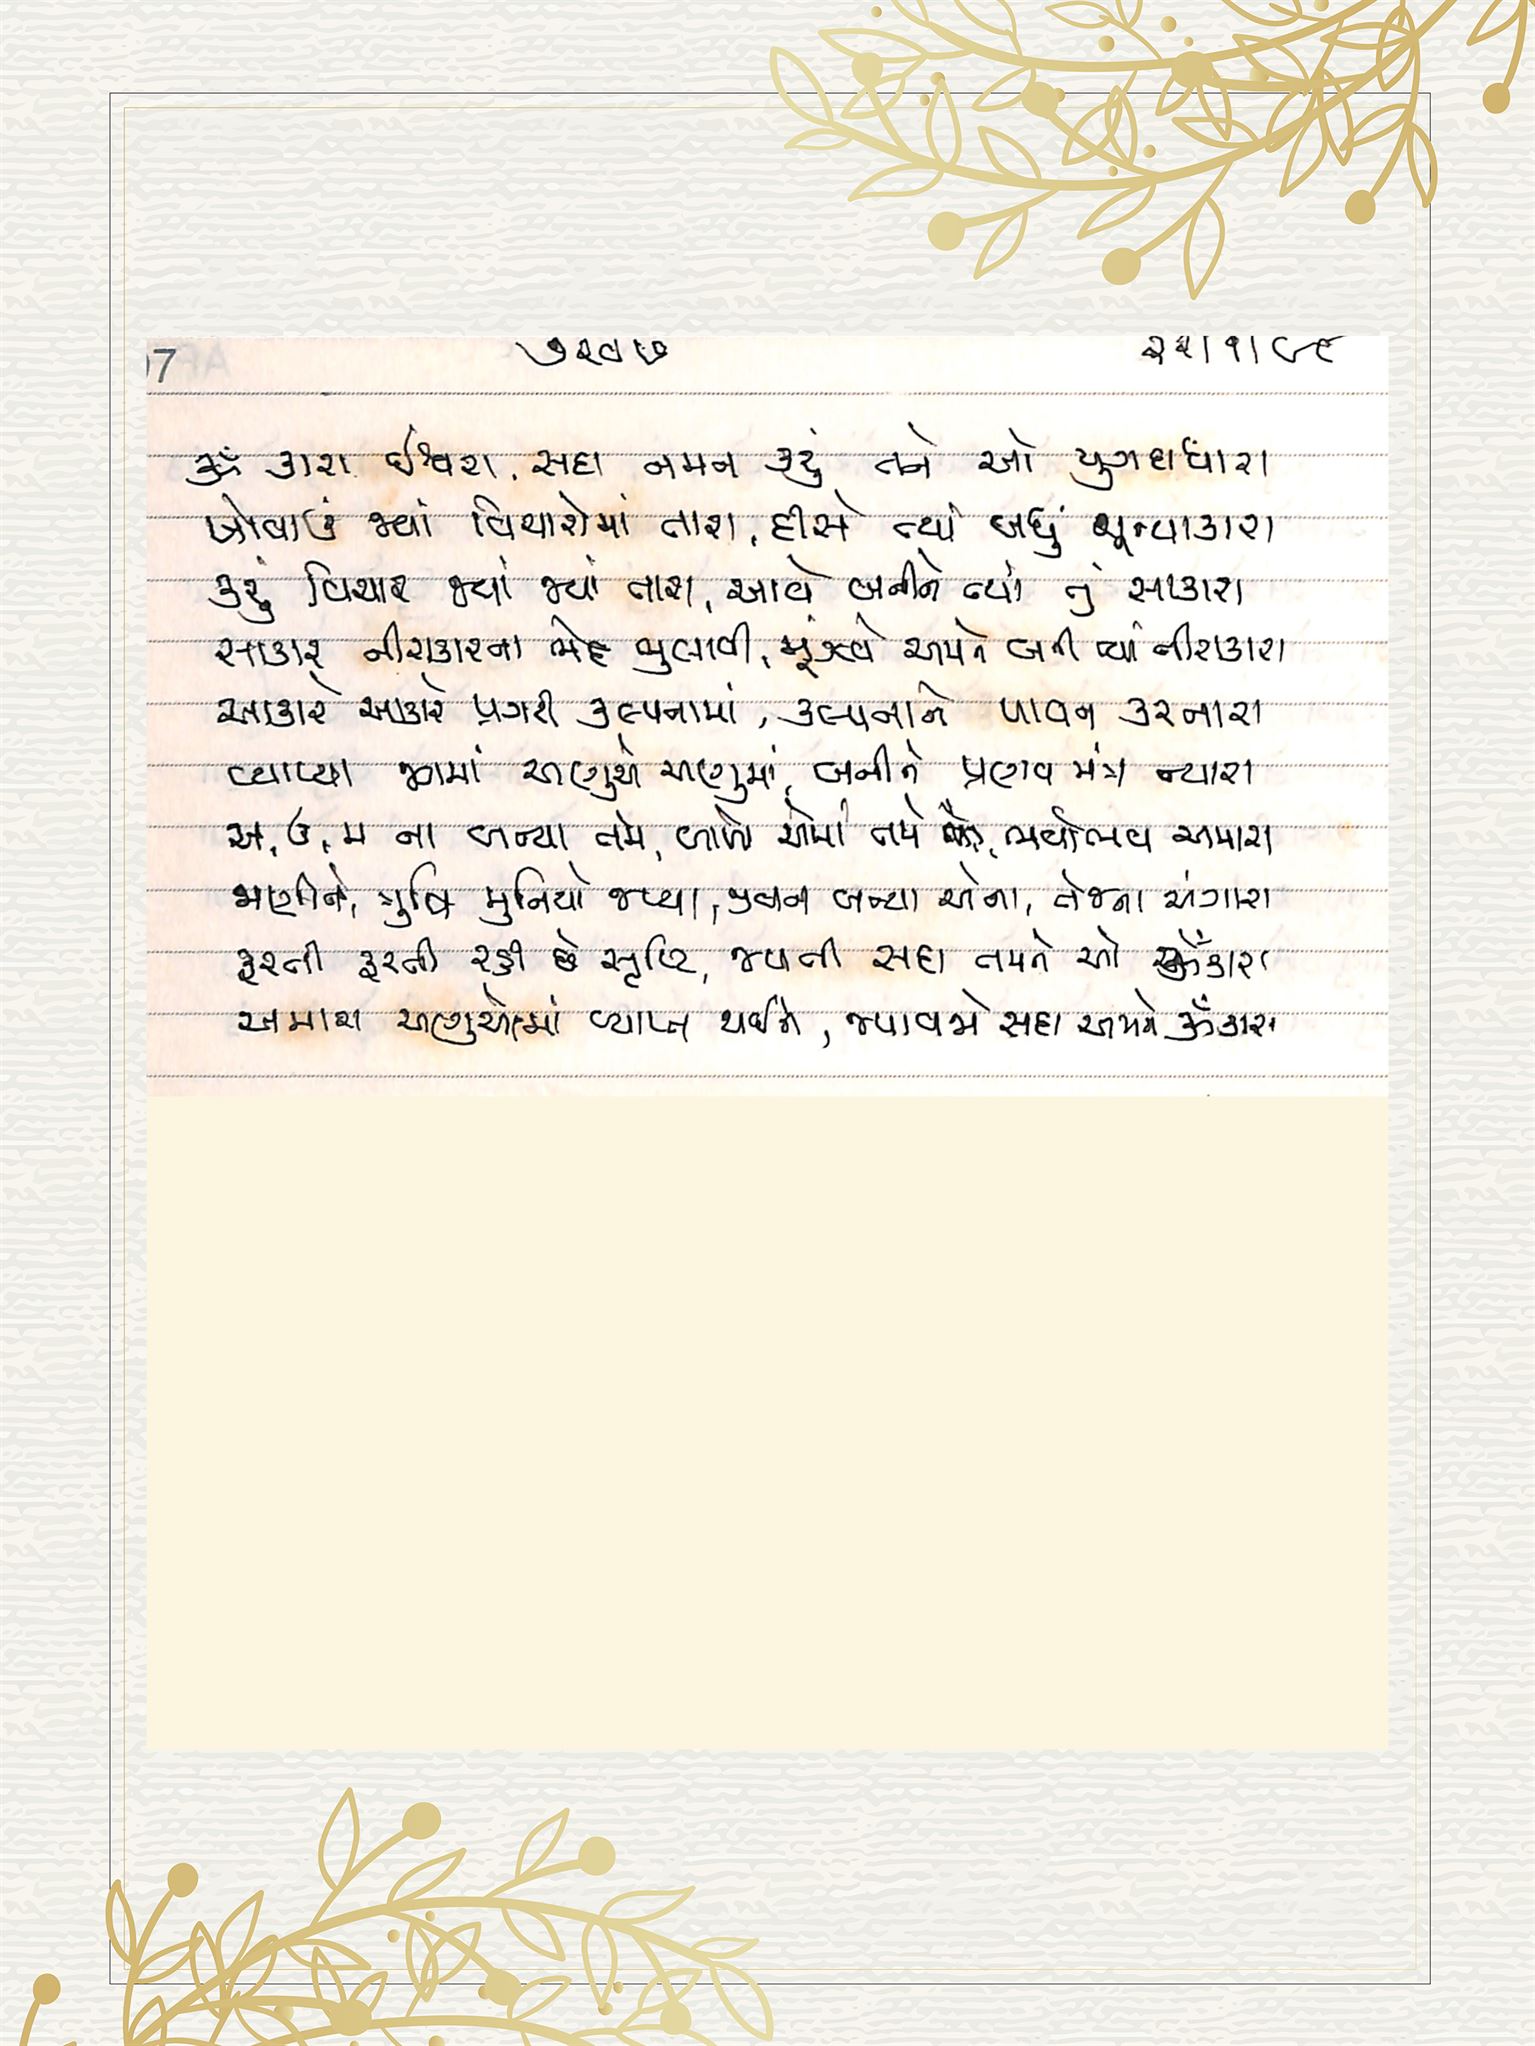 ૭૨૯૭ ૨૨/૧/૮૯
ૐ કારા ઈશ્વરા, સદા નમન કરું તને ઓ યુગદાધારા
ખોવાઉં જ્યાં વિચારોમાં તારા, દીસે ત્યાં બધું શૂન્યાકારા
કરું વિચાર જ્યાં જ્યાં તારા, આવે બનીને ત્યાં તું સાકારા
સાકાર નીરાકારના ભેદ ભુલાવી, મૂંઝવે અમને બની ત્યાં નીરાકારા
આકારે આકારે પ્રગટી કલ્પનામાં, કલ્પનાને પાવન કરનારા
વ્યાપ્યા જગમાં અણુએ અણુમાં, બનીને પ્રણવ મંત્ર ન્યારા
અ, ઉ, મ ના બન્યા તમે, એમાં તમે ભવોભવ અમારા
ઋષિ મુનિયો જપ્યા, બન્યા એના, તેજના અંગારા
ફરતી ફરતી રહી છે સૃષ્ટિ, જપતી સદા તમને ઓ ૐકારા
અમારા અણુએ વ્યાપ્ત થઈને, જપાવજો સદા અમને ૐકારા